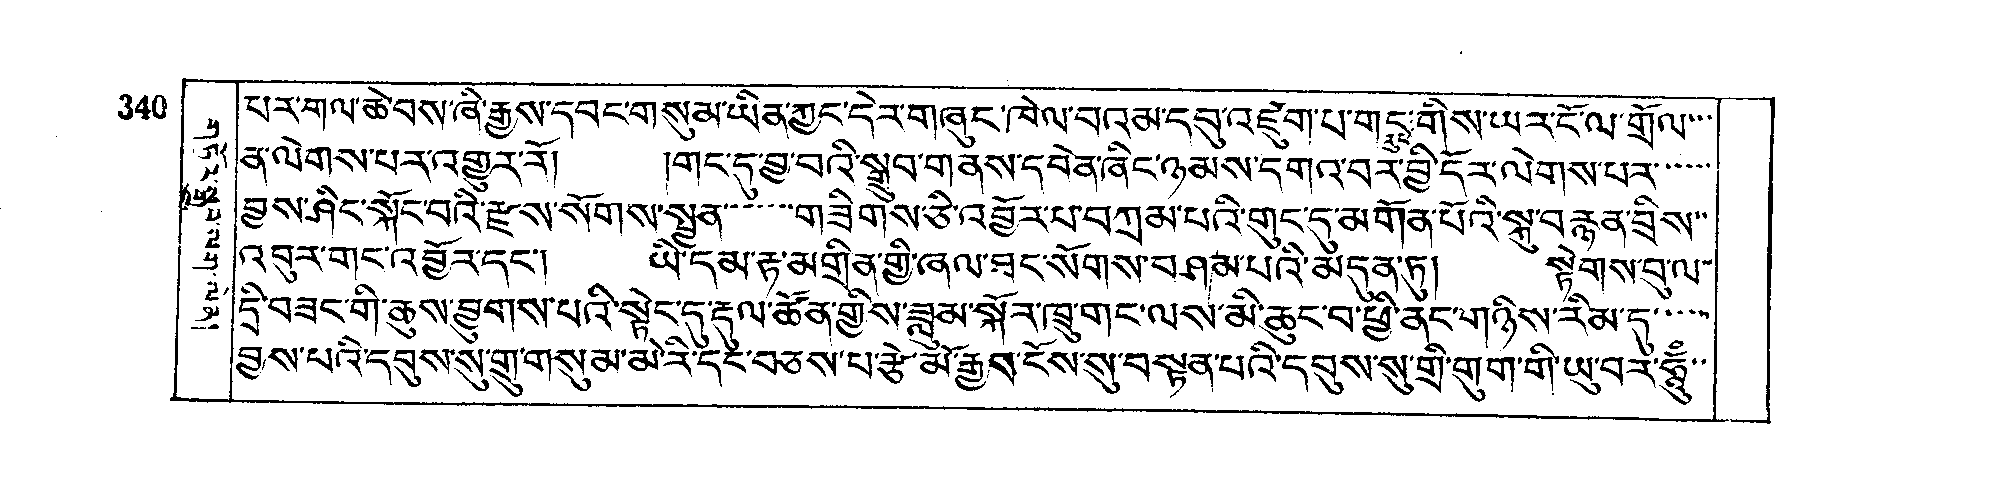 340
པར་གལ་ཆེ་བས་ཞི་རྒྱས་དབང་གསུམ་ཡིན་ཀྱང་དེར་གཞུང་ཁེལ་བའམ་དབུ་འཛུག་པ་གང་རུང་གིས་ཡར་ངོ་ལ་གྲོལ་
ན་ལེགས་པར་འགྱུར་རོ། །གང་དུ་བྱ་བའི་སྒྲུབ་གནས་དབེན་ཞིང་ཉམས་དགའ་བར་བྱི་དོར་ལེགས་པར་
བྱས་ཤིང་སྐོང་བའི་རྫས་སོགས་སྤྱན་གཟིགས་ཅི་འབྱོར་པ་བཀྲམ་པའི་གུང་དུ་མགོན་པོའི་སྐུ་བརྙན་བྲིས་
འབུར་གང་འབྱོར་དང༌། ཡི་དམ་རྟ་མགྲིན་གྱི་ཞལ་ཐང་སོགས་བཤམ་པའི་མདུན་ཏུ། སྟེགས་བུ་ལ་
དྲི་བཟང་གི་ཆུས་བྱུགས་པའི་སྟེང་དུ་རྡུལ་ཚོན་གྱིས་ཟླུམ་སྐོར་ཁྲུ་གང་ལས་མི་ཆུང་བ་ཕྱི་ནང་གཉིས་རིམ་དུ་
བྱས་པའི་དབུས་སུ་གྲུ་གསུམ་མེ་རི་དང་བཅས་པ་རྩེ་མོ་རྒྱབ་ངོས་སུ་བསྟན་པའི་དབུས་སུ་གྲི་གུག་གི་ཡུ་བར་ཧཱུྃ་